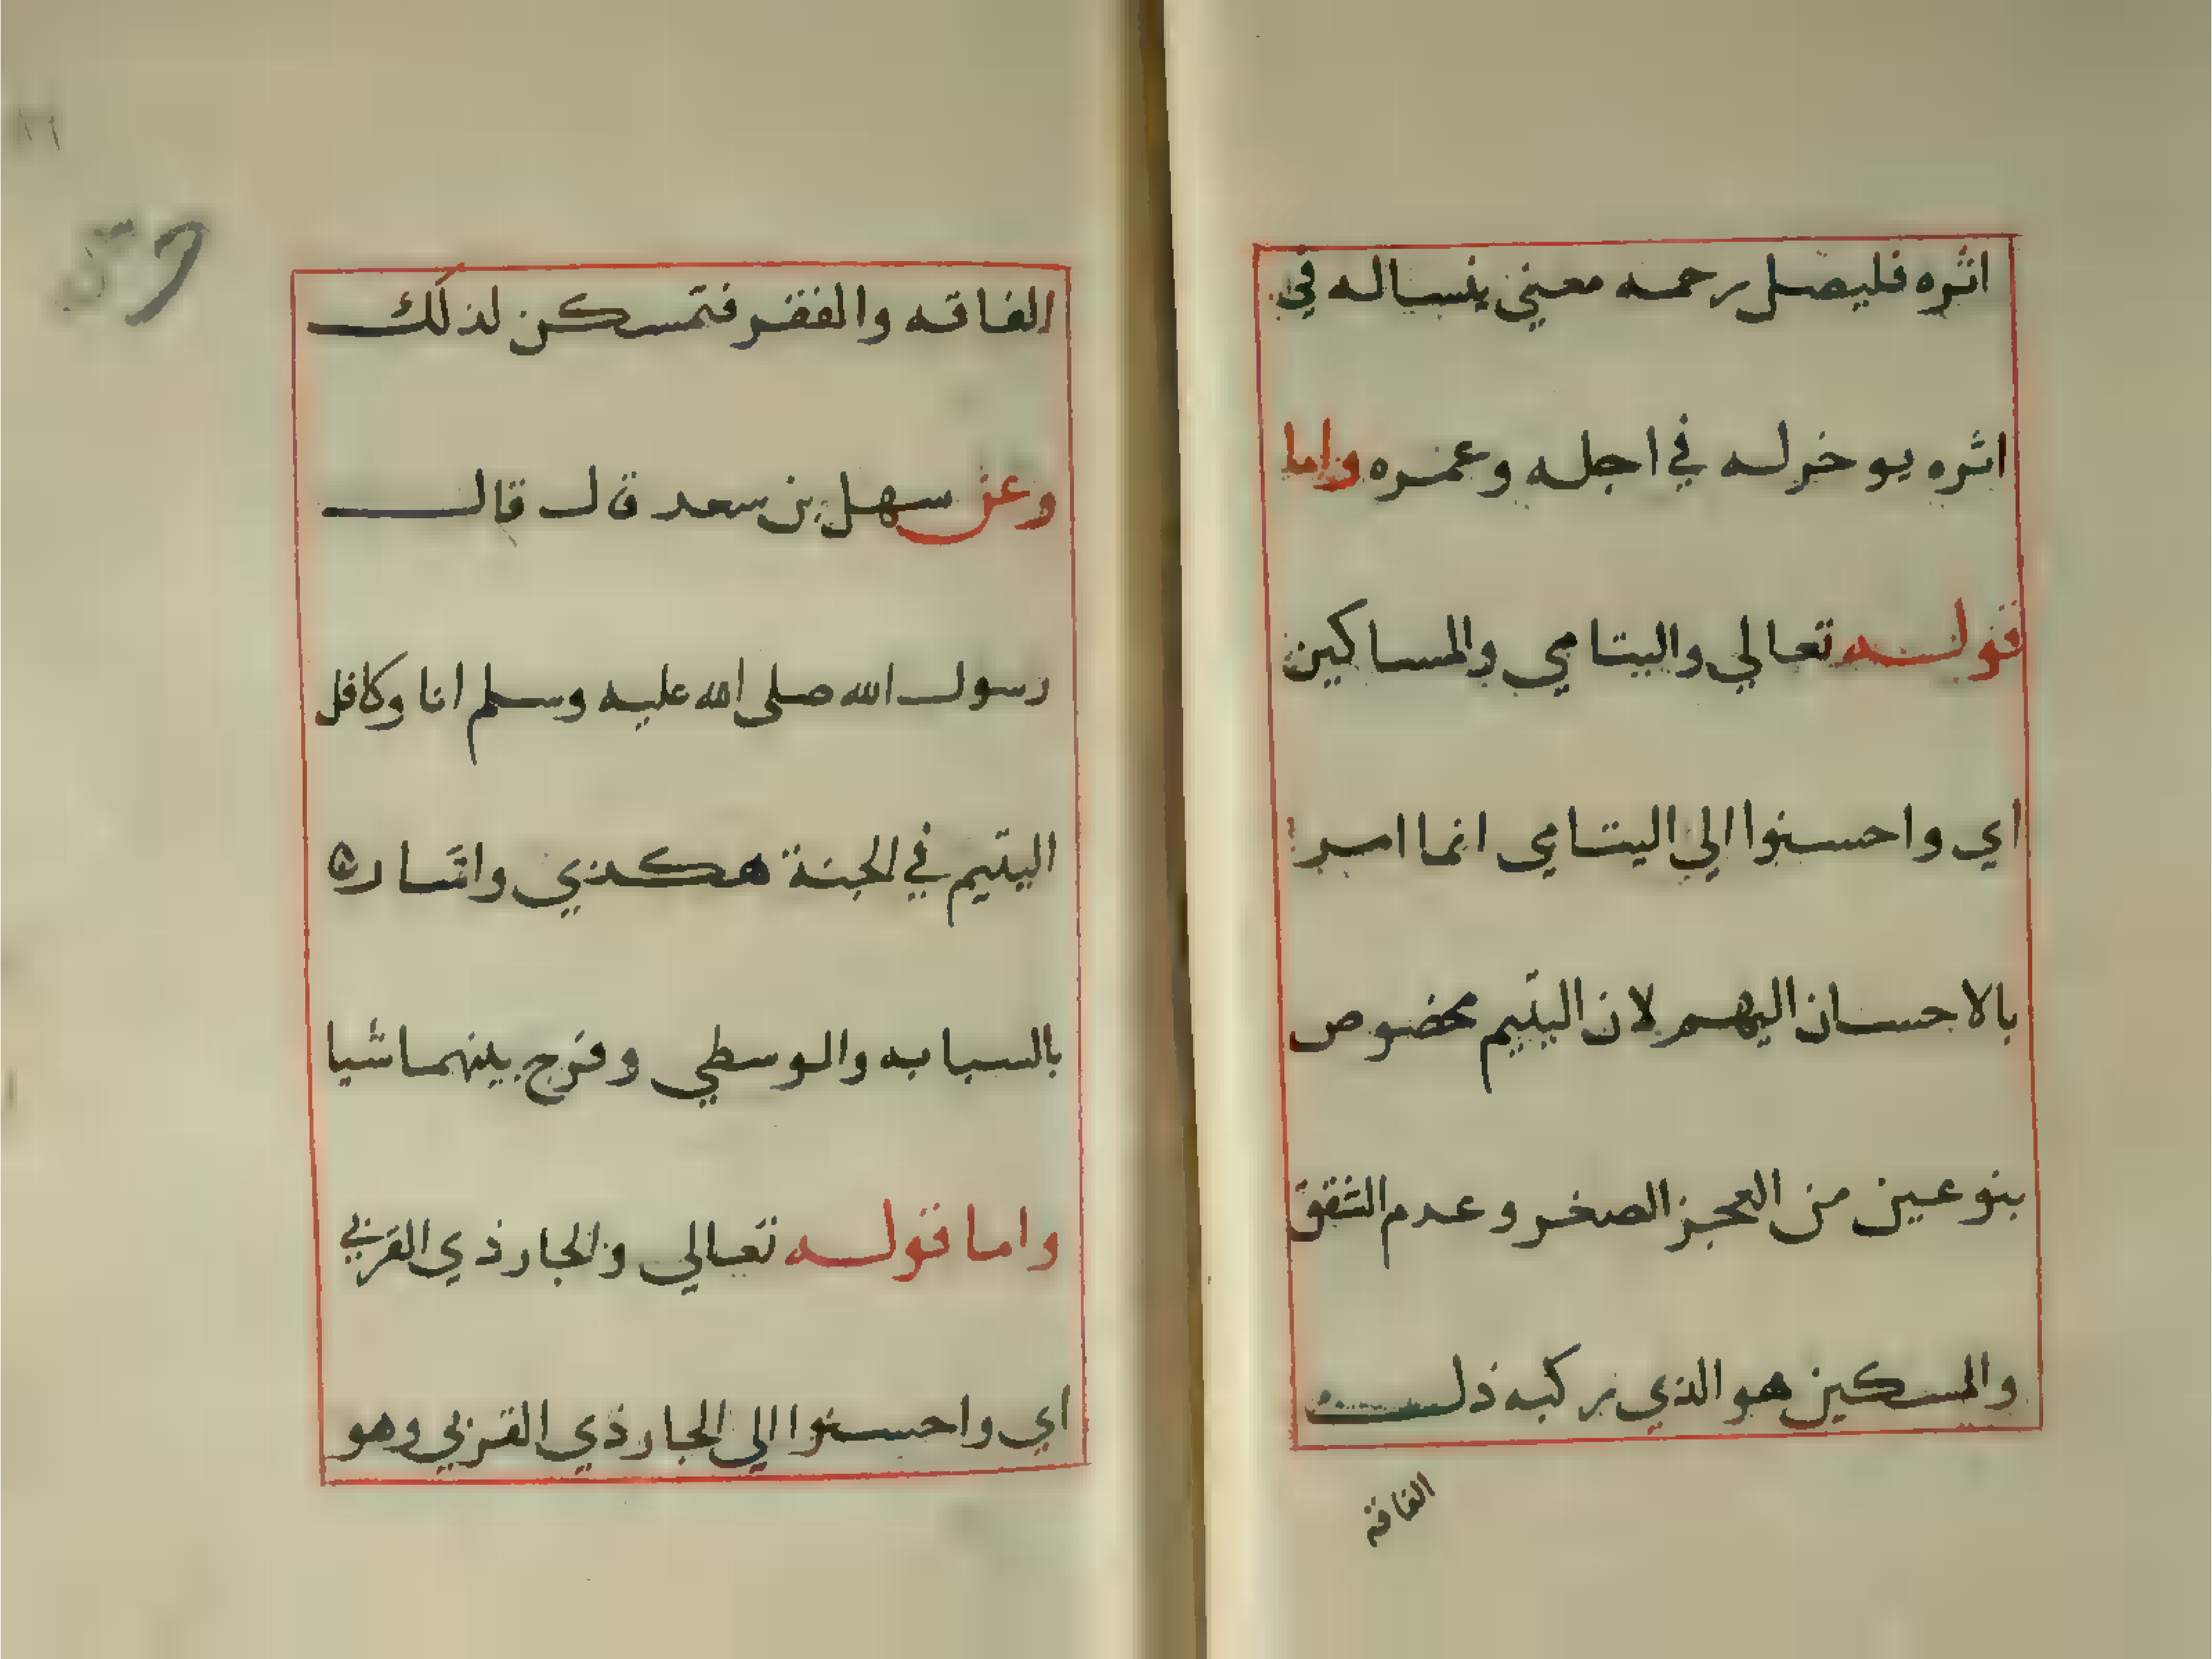 اثره فليصل رحمه معني ينساله في
اثره يوخر له في اجله وعمره واما
قوله تعالي واليتامي والمساكين
اي واحسنوا الي اليتامي انما امر
بالاحسان اليهم لان اليتيم مخصوص
بنوعين من العجز الصغر وعدم
والمسكين هو الذي ركبه ذل
الفاقه
الفاقه والفقر فتمسكن لذلك
وعن سهل بن سعد قال قال
رسول الله صلى الله عليه وسلم انا وكافل
اليتيم في الجنة هكذي واشار
بالسبابه والوسطي وفرج بينهما شيا
واما قوله تعالي والجار ذي القربي
اي واحسنوا الي الجار ذي القربي وهو